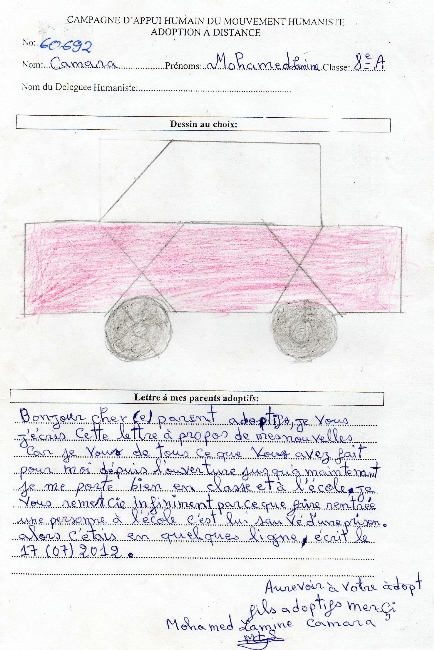 CAMPAGNE D'APPUI HUMAIN DU MOUVEMENT HUMANISTE
ADOPTION A DISTANCE
No: 60692
Nom: Camara Prénoms: Mohamed Lamine Classe: 8e A
Nom du Deleguee Humaniste:
Dessin au choix:
Lettre à mes parents adoptifs:
Bonjour cher (e) parent adoptifs, je vous
j'écris cette lettre à propos de mes nouvelles
Car je vous de tous ce que vous avez fait
pour moi depuis l'ouverture jusqu'à maintenant
je me porte bien en classe et à l'école, je
vous remercie infiniment parce que faire rentrée
une personne à l'école c'est lui sauvé d'une prison.
alors c'étais en quelques ligne, écrit le
17 (07) 2012.
Aurevoir à votre adopt
fils adoptifs merçi
Mohamed Lamine Camara